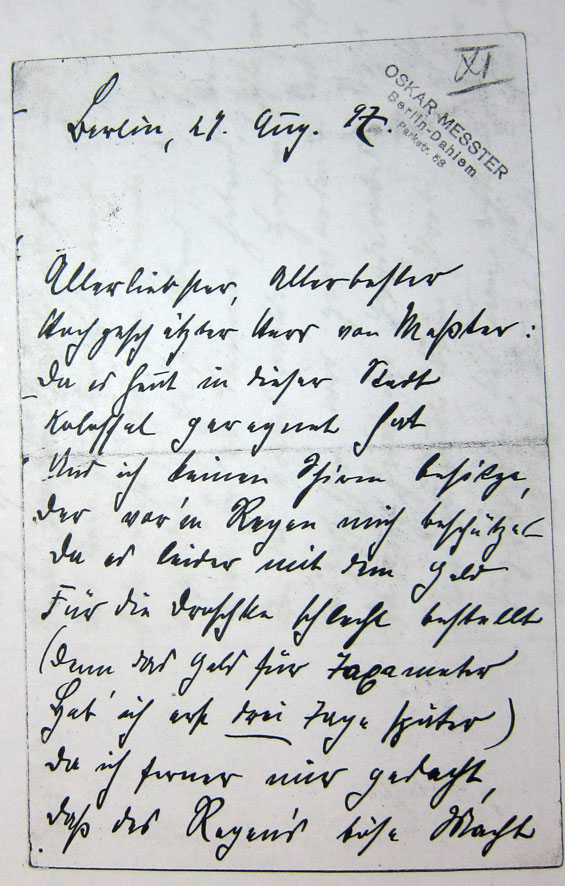 XI
OSKAR MESSTER
Berlin-Dahlem
Parkstr. 68
Berlin, 27. Aug. 97.
Allerliebster, Allerbester
Hochgeschätzter Herr von Meßter:
Da es heut in dieser Stadt
Kolossal geregnet hat
Und ich keinen Schirm besitze,
Der vor'm Regen mich beschütze
Da es leider mit dem Geld
Für die Droschke schlecht bestellt
(Denn das Geld für Taxameter
Hab' ich erst drei Tage später)
Da ich ferner mir gedacht,
Daß des Regens böse Macht